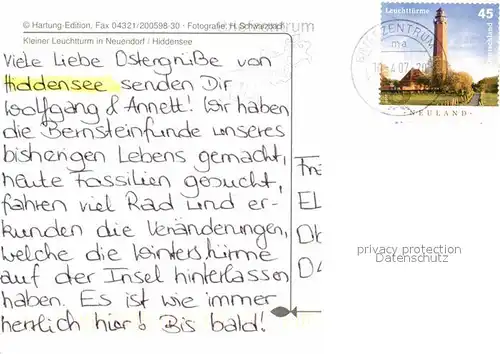 © Hartung-Edition, Fax 04321/200598-30 · Fotografie: H. Schwarzbach
Kleiner Leuchtturm in Neuendorf / Hiddensee
Viele Liebe Ostergrüße von
Hiddensee senden Dir
Wolfgang & Annett! Wir haben
die Bernsteinfunde unseres
bisherigen Lebens gemacht,
heute Fossilien gesucht,
fahren viel Rad und er-
kunden die Veränderungen,
welche die Winterstürme
auf der Insel hinterlassen
haben. Es ist wie immer
herrlich hier! Bis bald!
Leuchttürme
45
Deutschland
NEULAND
BRIEFZENTRUM
privacy protection
Datenschutz